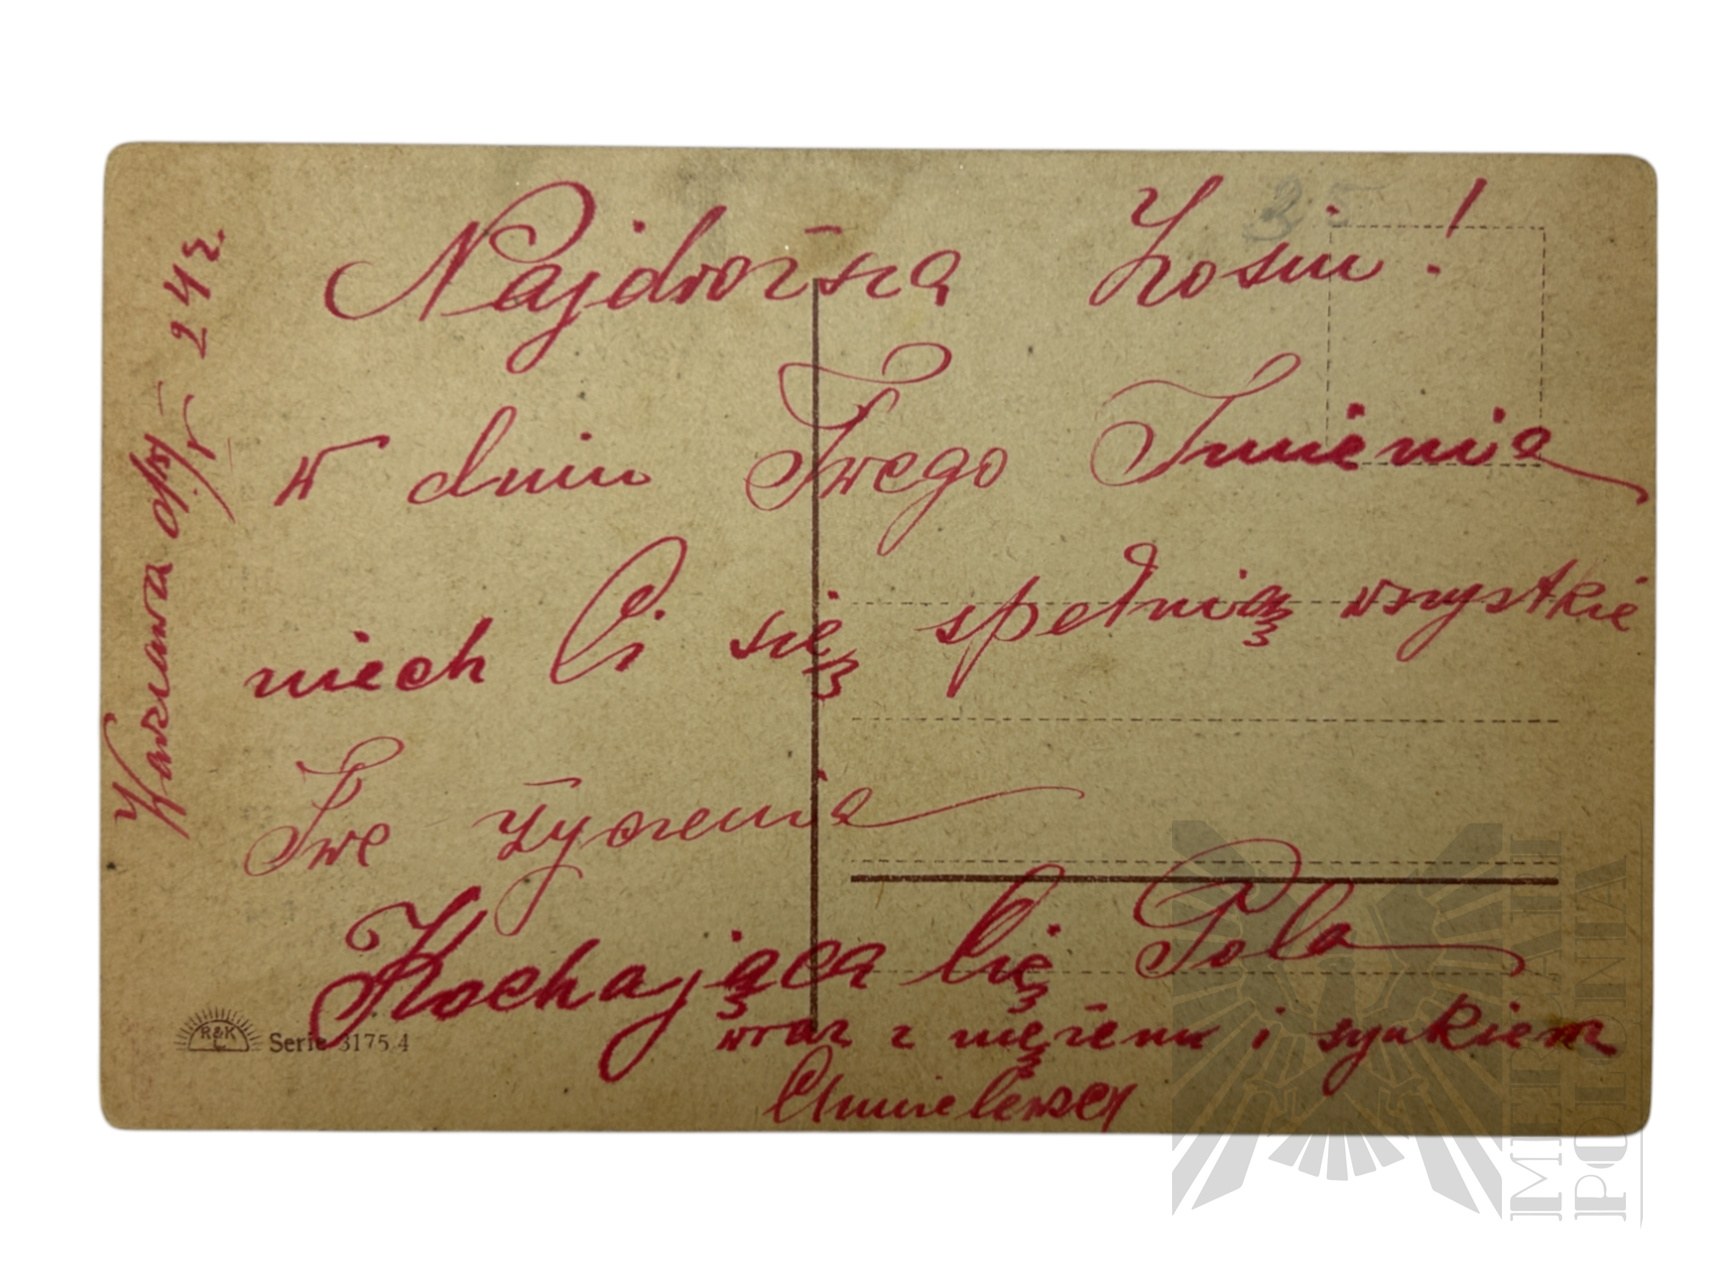 Najdroższa Zosiu!
w dniu Twego Imienia
niech Ci się spełnią wszystkie
Twe życzenia
Kochająca Cię Pola
wraz z mężem i synkiem
Chmielewscy
Warszawa
24 r.
35
R&K
L
Serie 3175/4
MEDALE
POLONIA